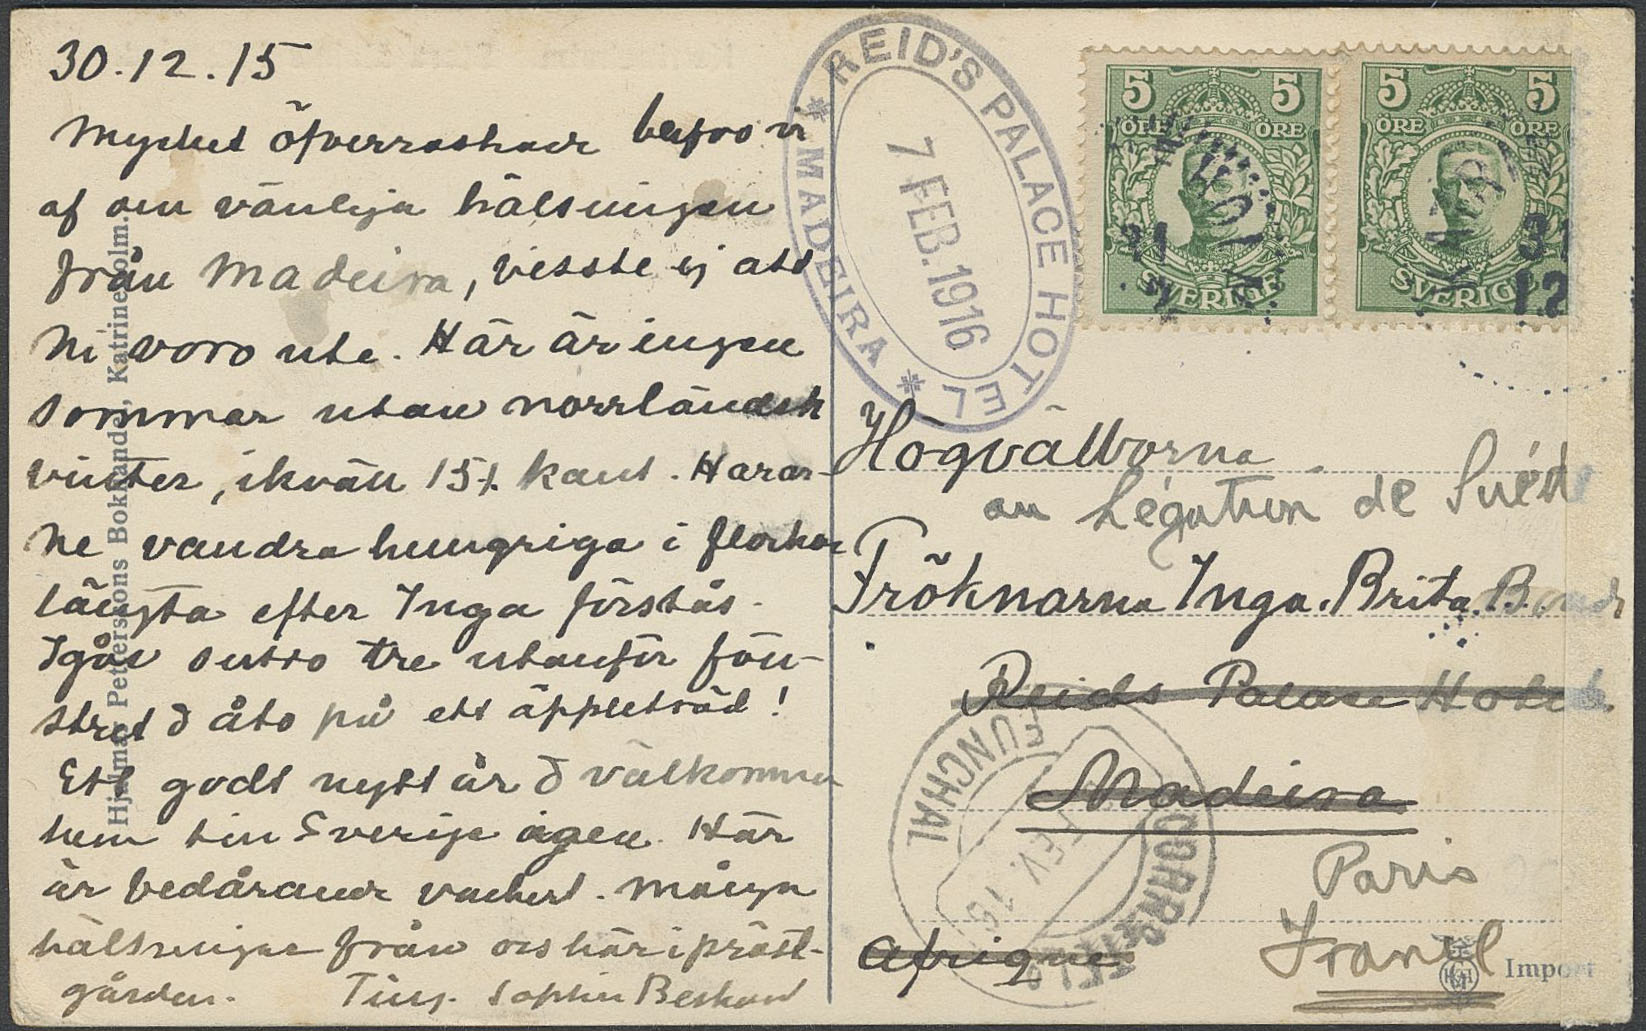 30.12.15
Mycket öfverraskade blefvo vi
af den vänliga hälsningen
från Madeira, visste ej att
Ni voro ute. Här är ingen
sommar utan norrländsk
vinter, ikväll 15 kallt. Harar-
ne vandra hungriga i flockar
längta efter Inga förstås.
Igår sutto tre utanför fön-
stret o åto på ett äppleträd!
Ett godt nytt år o välkomna
hem till Sverige igen. Här
är bedårande vackert. Många
hälsningar från oss här i präst-
gården. Sophie Beskow
Hjalmar Petterssons Bokhandel, Katrineholm.
* REID'S PALACE HOTEL * MADEIRA
7 FEB. 1916
5 5
ÖRE ÖRE
SVERIGE
31
5 5
ÖRE ÖRE
SVERIGE
31
12
Högvälborna
au Légation de Suède
Fröknarna Inga, Brita B.
Reids Palace Hotel
Madeira
Paris
Afrique
FUNCHAL
FEV. 16
Import